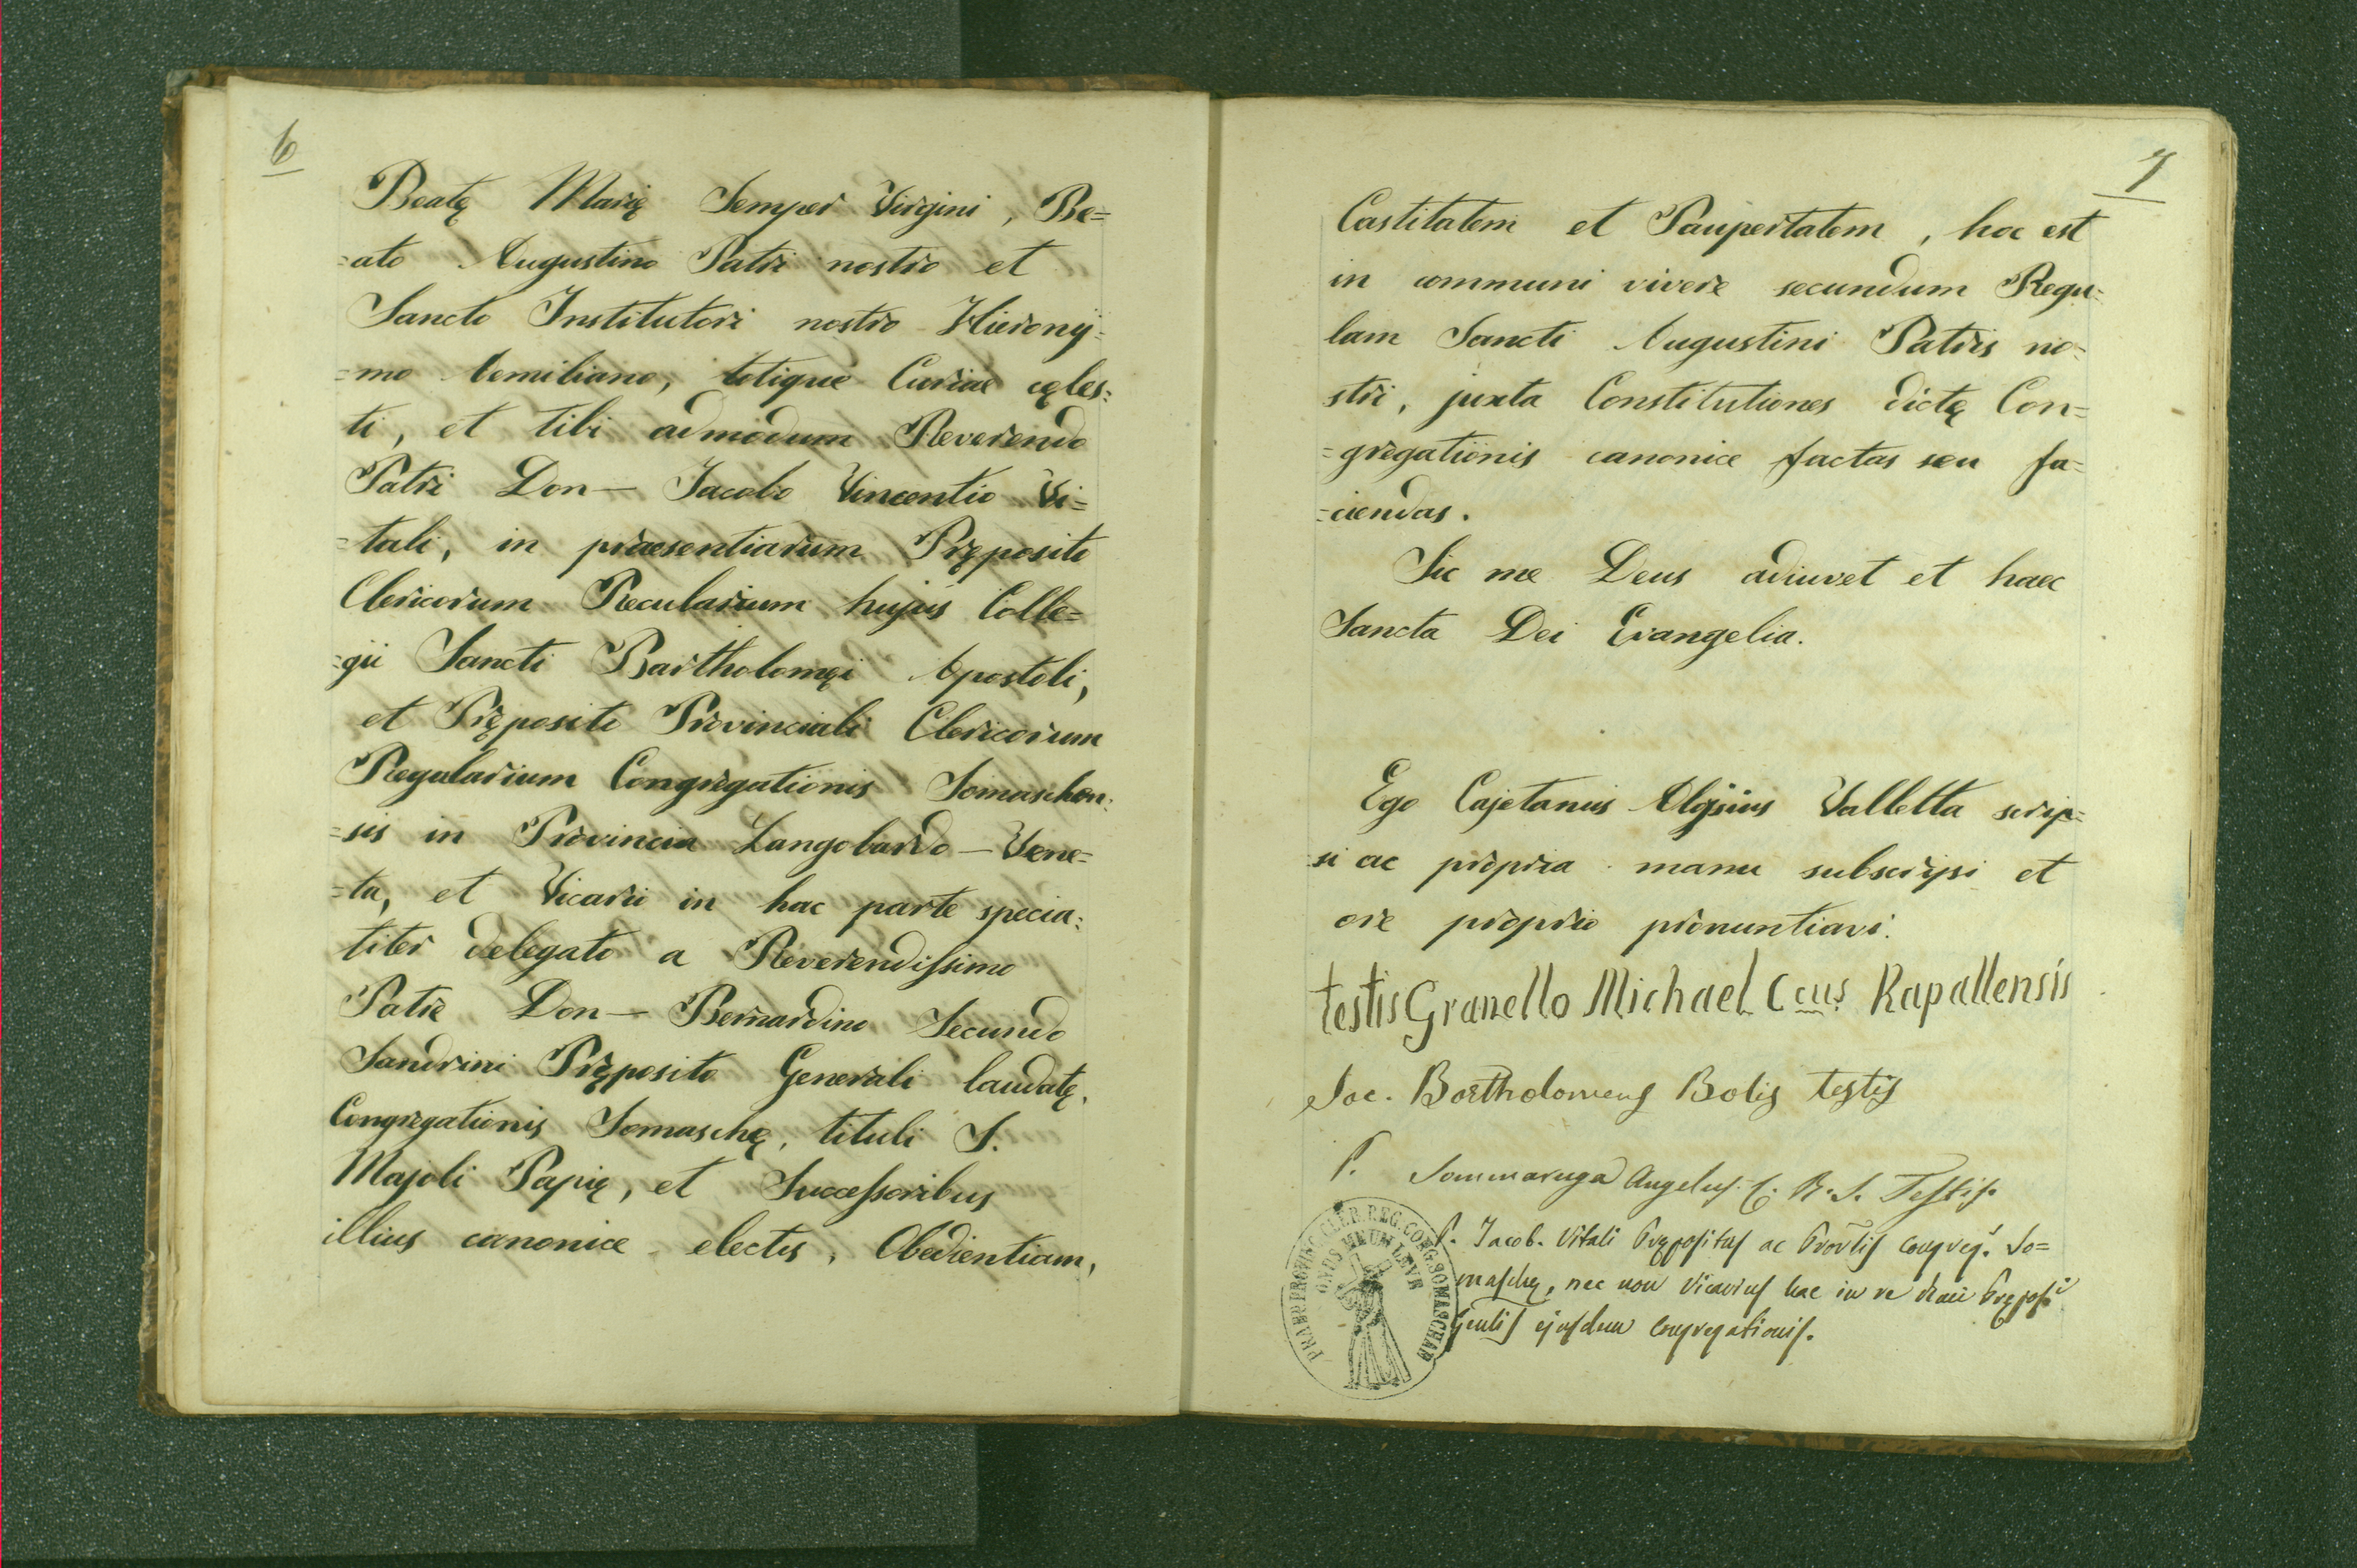 6
Beatę Marię Semper Virgini, Be=
=ato Augustino Patri nostro et
Sancto Institutori nostro Hierony=
=mo Aemiliano, totique Curiae cęles=
ti, et tibi admodum Reverendo
Patri Don— Jacobo Vincentio Vi=
=tali, in praesentiarum Pręposito
Clericorum Recularium hujus Colle=
=gii Sancti Bartholomęi Apostoli,
et Pręposito Provinciali Clericorum
Regularium Congregationis Somaschen=
=sis in Provincia Langobardo—Vene=
=ta, et Vicarii in hac parte specia=
titer delegato a Reverendissimo
Patre Don— Bernardino Secundo
Sandrini Pręposito Generali laudatę
Congregationis Somaschę, tituli S.
Majoli Papię, et Successoribus
illius canonice electis, Obedientiam,
7
Castitatem et Paupertatem, hoc est
in communi vivere secundum Regu=
lam Sancti Augustini Patris no=
stri, juxta Constitutiones dictę Con=
=gregationis canonice factas seu fa=
=ciendas.
Sic me Deus adiuvet et haec
Sancta Dei Evangelia.
Ego Cajetanus Valletta scrip=
=si ac propria manu subscripsi et
ore proprio pronuntiavi.
testis Granello Michael Ccus Rapallensis
Sac. Bartholomeus Bolis testis
P. Sommaruga Angelus C. R. S. Testis.
P. Jacob. Vitali Prępositus ac Provlis congreg. So=
maschę, nec non Vicarius hac in re
Gẽnlis ejusdem Congregationis.
PRAEP. PROVINC. CLER. REG. CONG. SOMASCHAE
ONUS MEUM LEVE